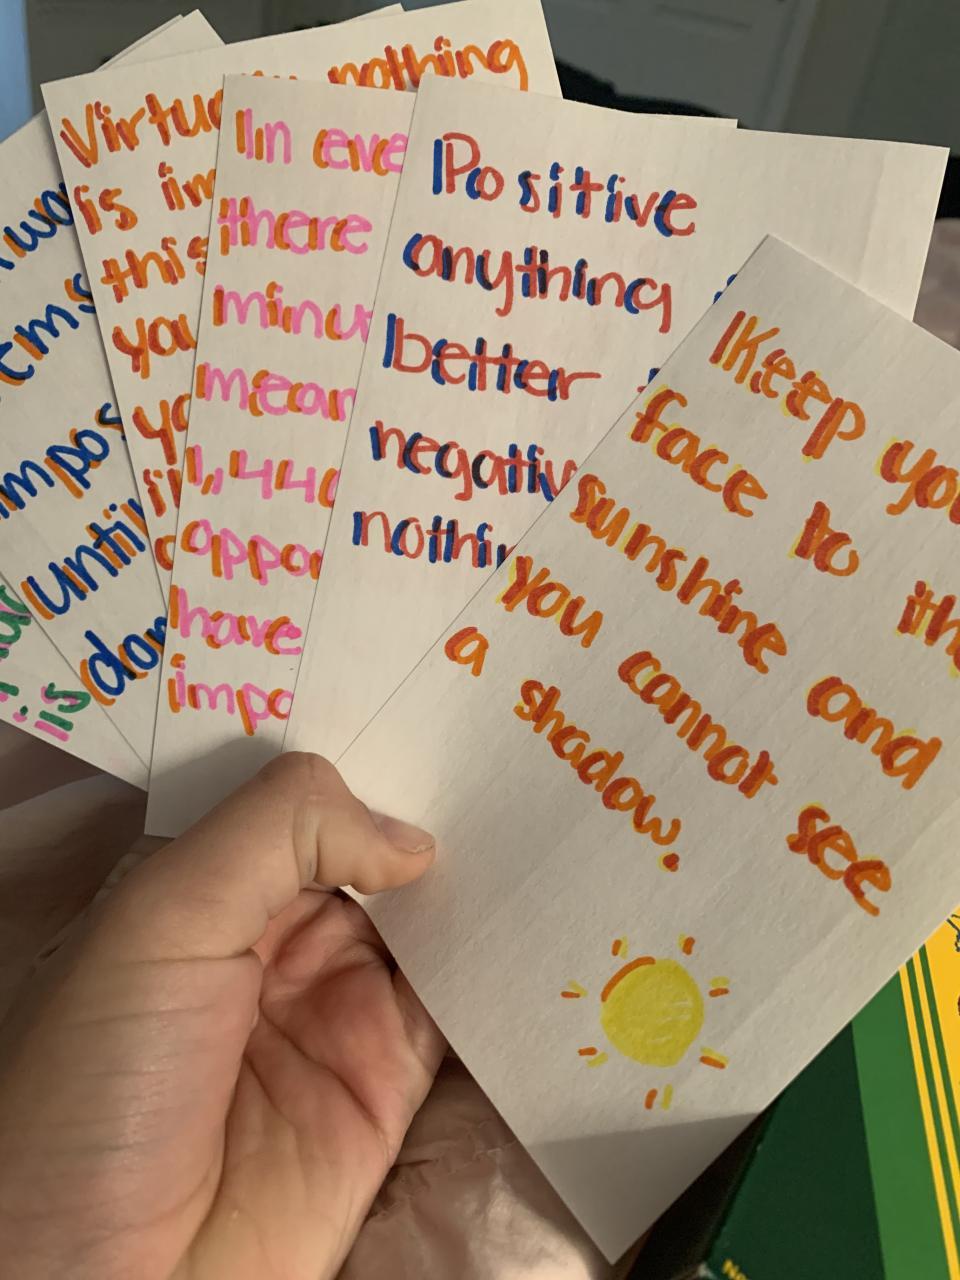 is
wa
ems
impos
until
don
Virtu nothing
is im
this
you
yo
In eve
there
minu
mean
1,440
oppo
have
impo
Positive
anything
better
negativ
nothin
Keep you
face to th
sunshine and
you cannot see
a shadow.